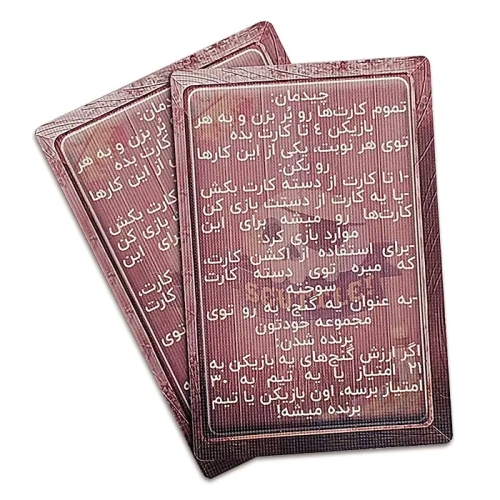 چیدمان:
تموم کارت‌ها رو بُر بزن و به هر
بازیکن ٤ تا کارت بده
توی هر نوبت، یکی از این کارها
رو بکن:
-۱ تا کارت از دسته کارت بکش
-یا یه کارت از دستت بازی کن
کارت‌ها رو میشه برای این
موارد بازی کرد:
-برای استفاده از اکشن کارت
که میره توی دسته کارت
سوخته
-به عنوان یه گنج، به رو توی
مجموعه خودتون
برنده شدن:
اگر ارزش گنج‌های یه بازیکن به
۲۱ امتیاز یا یه تیم به ۳۰
امتیاز برسه، اون بازیکن یا تیم
برنده میشه!